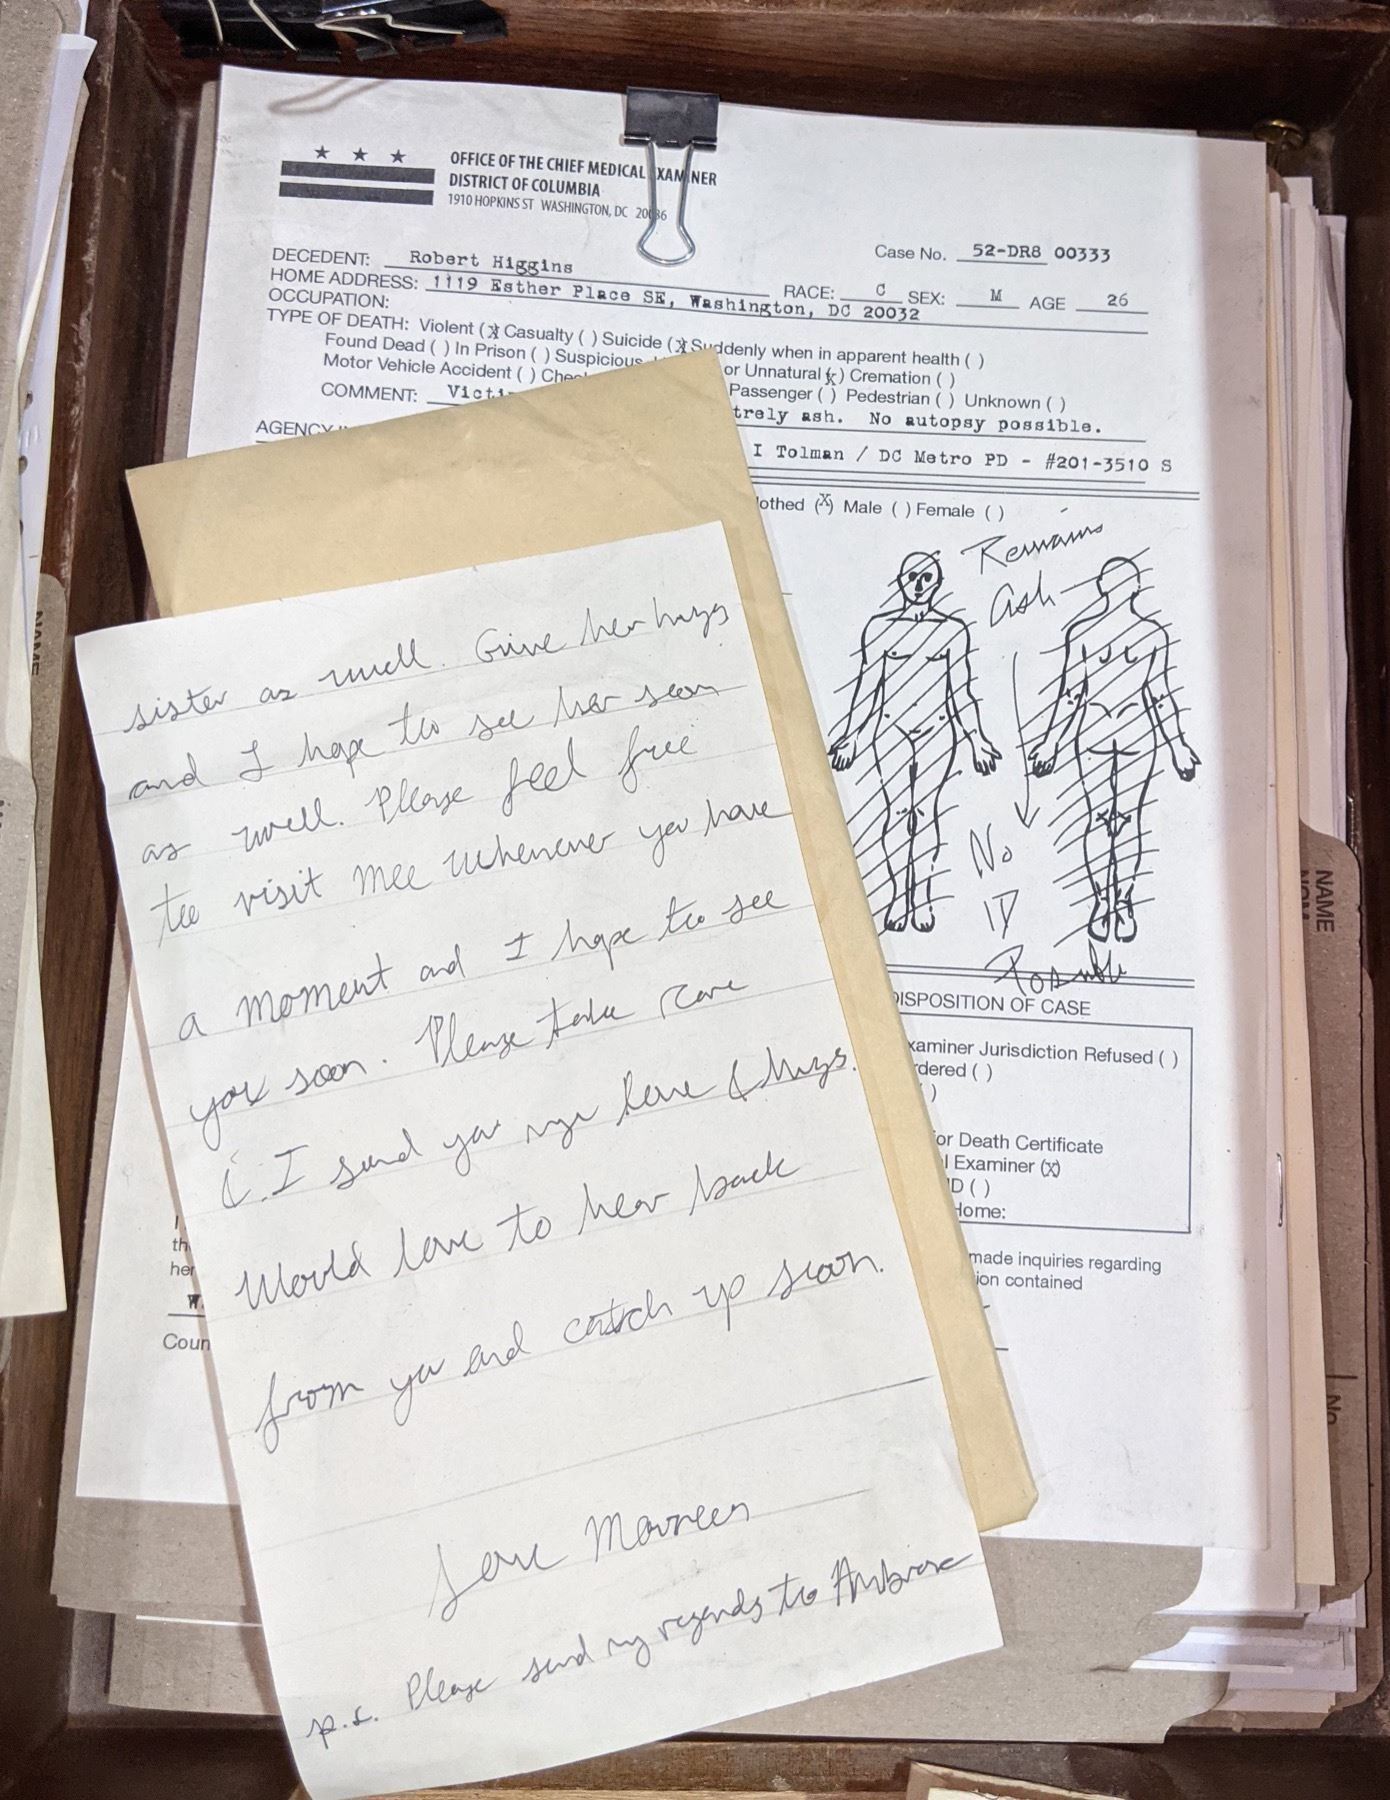 OFFICE OF THE CHIEF MEDICAL EXAMINER
DISTRICT OF COLUMBIA
1910 HOPKINS ST WASHINGTON, DC 20036
DECEDENT: Robert Higgins
Case No. 52-DR8 00333
HOME ADDRESS: 1119 Esther Place SE, Washington, DC 20032
RACE: C SEX: M AGE 26
OCCUPATION:
TYPE OF DEATH: Violent (x) Casualty ( ) Suicide (x) Suddenly when in apparent health ( )
Found Dead ( ) In Prison ( ) Suspicious or Unnatural (x) Cremation ( )
Motor Vehicle Accident ( ) Passenger ( ) Pedestrian ( ) Unknown ( )
COMMENT: ash. No autopsy possible.
AGENCY I Tolman / DC Metro PD - #201-3510 S
(X) Male ( ) Female ( )
Remains
Ash
No
ID
Possible
DISPOSITION OF CASE
Jurisdiction Refused ( )
( )
)
or Death Certificate
Examiner (x)
( )
Home:
made inquiries regarding
contained
her
NAME
NAME
No
sister as well. Give her hugs
and I hope too see her soon
as well. Please feel free
too visit mee whenever you have
a moment and I hope too see
you soon. Please take care
& I send you my love & hugs.
Would love to hear back
from you and catch up soon.
Love Maureen
p.s. Please send my regards to Ambrose